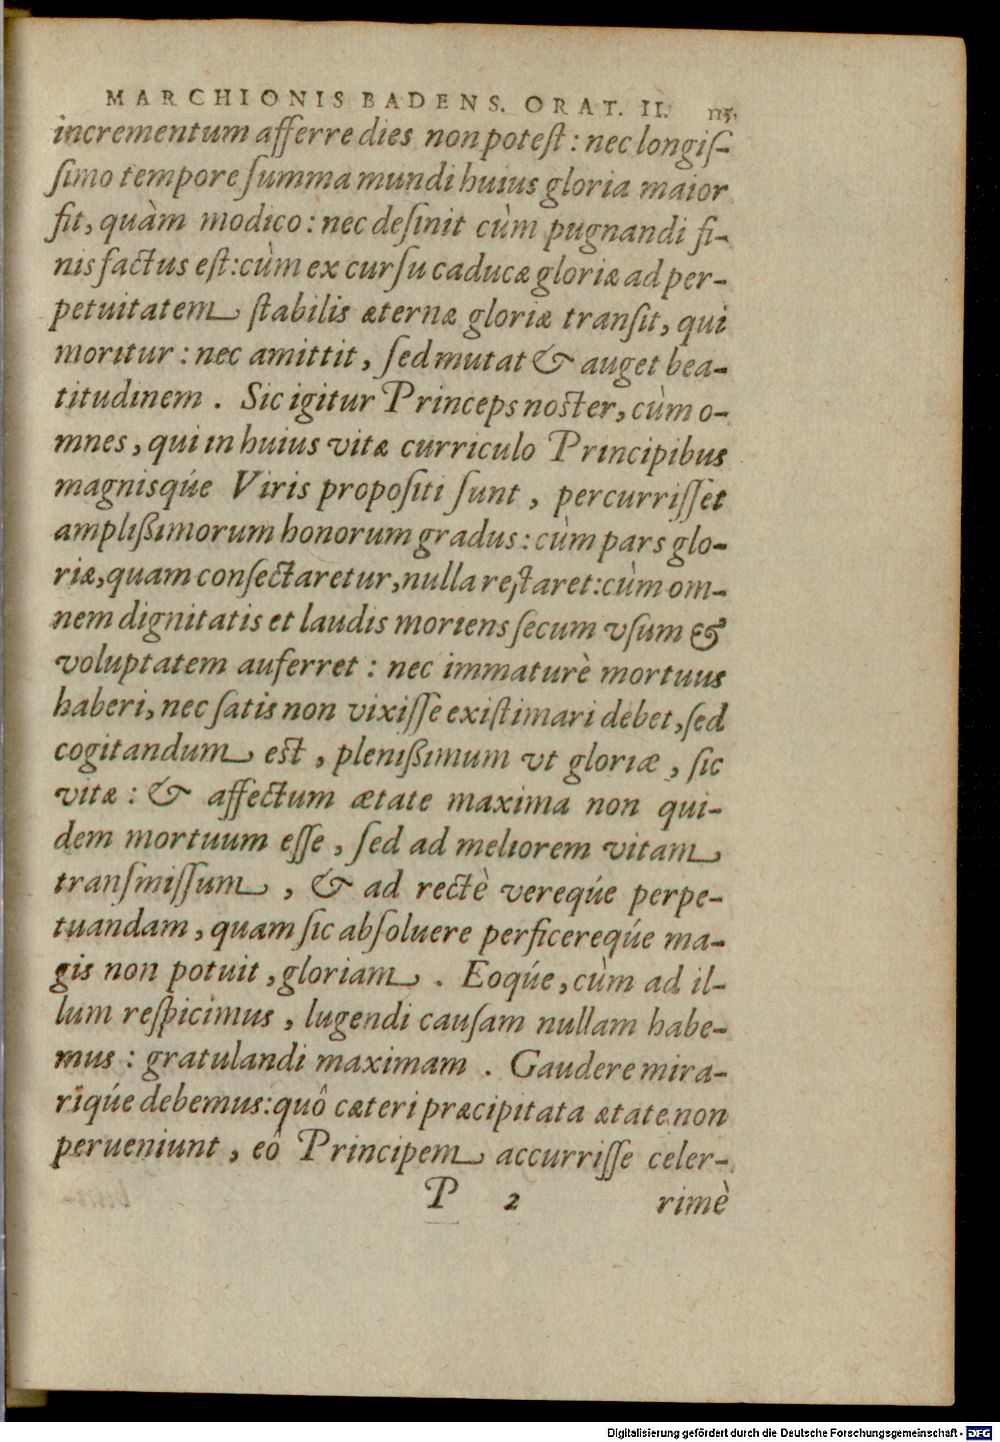 MARCHIONIS BADENS. ORAT. II. 115.
incrementum afferre dies non potest: nec longiſ-
ſimo tempore ſumma mundi huius gloria maior
fit, quàm modico: nec deſinit cùm pugnandi fi-
nis factus est: cùm ex curſu caducæ gloriæ ad per-
petuitatem ſtabilis æternæ gloriæ tranſit, qui
moritur: nec amittit, ſed mutat & auget bea-
titudinem. Sic igitur Princeps noster, cùm o-
mnes, qui in huius vitæ curriculo Principibus
magnisqúe Viris propoſiti ſunt, percurriſſet
amplißimorum honorum gradus: cùm pars glo-
riæ, quam conſectaretur, nulla reſtaret: cùm om-
nem dignitatis et laudis moriens ſecum vſum &
voluptatem auferret: nec immaturè mortuus
haberi, nec ſatis non vixiſſe exiſtimari debet, ſed
cogitandum est, plenißimum vt gloriæ, ſic
vitæ: & affectum ætate maxima non qui-
dem mortuum eſſe, ſed ad meliorem vitam
tranſmiſſum, & ad rectè vereqúe perpe-
tuandam, quam ſic abſoluere perficereqúe ma-
gis non potuit, gloriam. Eoqúe, cùm ad il-
lum reſpicimus, lugendi cauſam nullam habe-
mus: gratulandi maximam. Gaudere mira-
riqúe debemus: quô cæteri præcipitata ætate non
perueniunt, eô Principem accurriſſe celer-
P 2 rimè
Digitalisierung gefördert durch die Deutsche Forschungsgemeinschaft - DFG